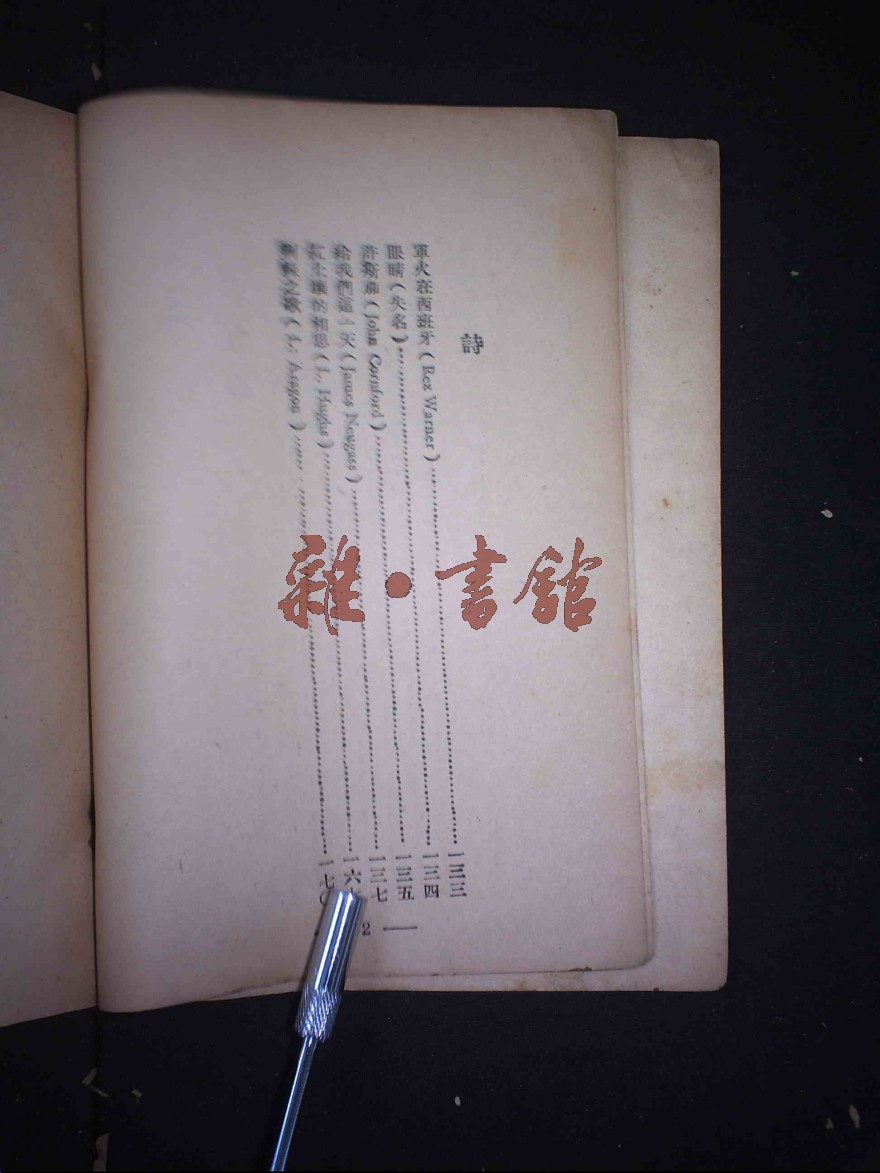 詩
軍火在西班牙(Rex Warner)……一三三
眼睛(失名)……一三四
許斯加(John Cornford)……一三五
給我們這一天(James Neugass)……一三七
紅土壤的相思(L. Hughs)……一六
之歌(L. Aragon)……一七
2
雜·書館